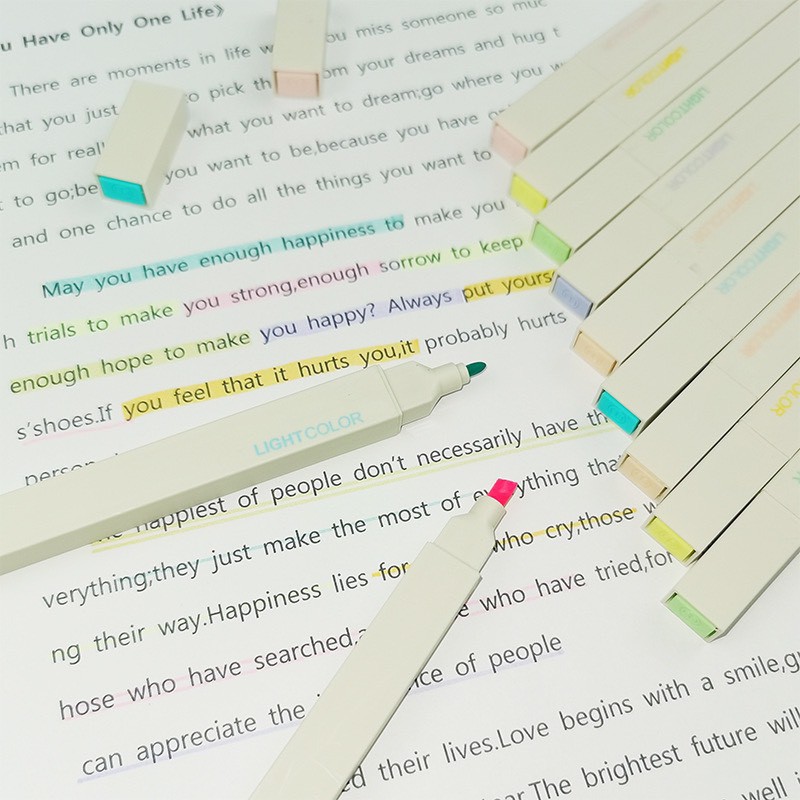 u Have Only One Life》
There are moments in life you miss someone so muc
that you just to pick from your dreams and hug t
em for real! what you want to dream;go where you w
to go;be you want to be,because you have
and one chance to do all the things you want to
May you have enough happiness to make you
h trials to make you strong,enough sorrow to keep
enough hope to make you happy? Always put yours
s'shoes.If you feel that it hurts you,it probably hurts
LIGHTCOLOR
happiest of people don't necessarily have th
verything;they just make the most of everything tha
ng their way.Happiness lies for who cry,those w
hose who have searched, who have tried,for
can appreciate the of people
their lives.Love begins with a smile,g
The brightest future will
well
LIGHTCOLOR
LIGHTCOLOR
LIGHTCOLOR
LIGHTCOLOR
LIGHTCOLOR